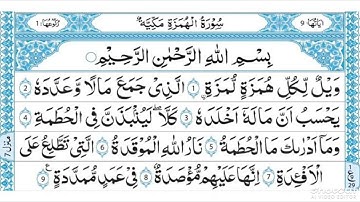 اٰیَاتُهَا 9 سُوْرَةُ الْهُمَزَةِ مَكِّيَّةٌ رُكُوْعُهَا 1
بِسْمِ اللّٰهِ الرَّحْمٰنِ الرَّحِيْمِ
وَيْلٌ لِّكُلِّ هُمَزَةٍ لُّمَزَةٍ 1 الَّذِيْ جَمَعَ مَالًا وَّعَدَّدَهٗ 2
يَحْسَبُ اَنَّ مَالَهٗٓ اَخْلَدَهٗ 3 كَلَّا لَيُنْۢبَذَنَّ فِي الْحُطَمَةِ 4
وَمَآ اَدْرٰىكَ مَا الْحُطَمَةُ 5 نَارُ اللّٰهِ الْمُوْقَدَةُ 6 الَّتِيْ تَطَّلِعُ عَلَى
الْاَفْـِٕدَةِ 7 اِنَّهَا عَلَيْهِمْ مُّؤْصَدَةٌ 8 فِيْ عَمَدٍ مُّمَدَّدَةٍ 9
منزل 7
29